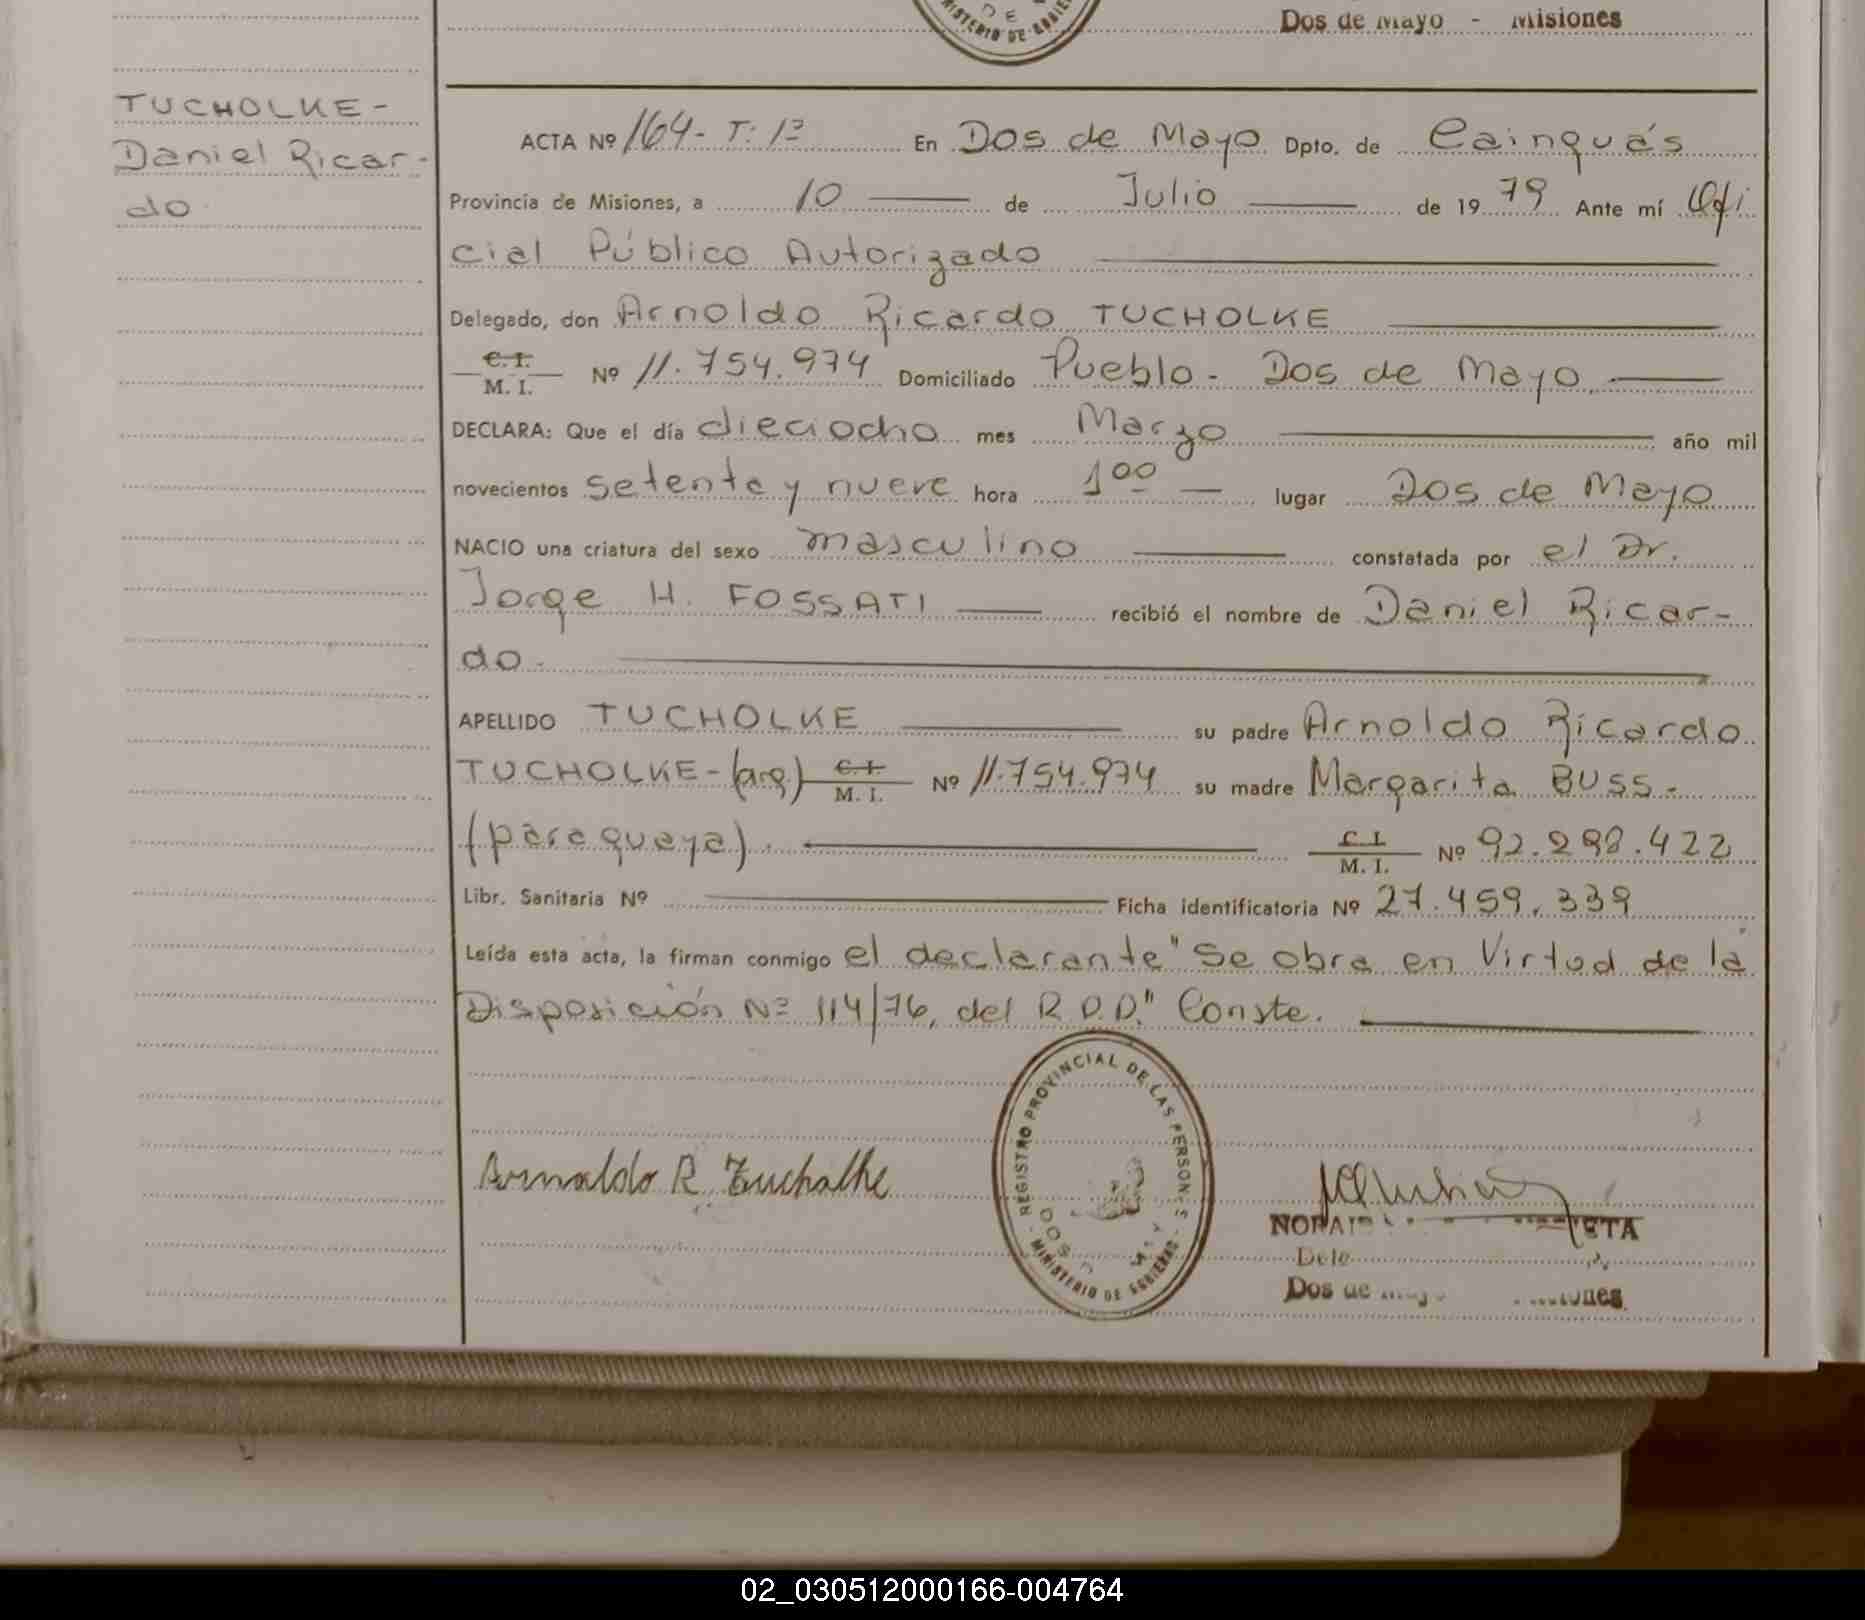 MINISTERIO DE GOBIE
DE
Dos de Mayo - Misiones
TUCHOLKE-
Daniel Ricar-
do
ACTA Nº 164- T: 1º En Dos de Mayo Dpto. de Cainguás
Provincia de Misiones, a 10 de Julio de 1979 Ante mí Ofi
cial Público Autorizado
Delegado, don Arnoldo Ricardo TUCHOLKE
C. I.
M. I. Nº 11.754.974 Domiciliado Pueblo - Dos de Mayo
DECLARA: Que el día dieciocho mes Marzo año mil
novecientos setenta y nueve hora 1 00 lugar Dos de Mayo
NACIO una criatura del sexo masculino constatada por el Dr.
Jorge H. FOSSATI recibió el nombre de Daniel Ricar-
do.
APELLIDO TUCHOLKE su padre Arnoldo Ricardo
TUCHOLKE-(arg.) C. I.
M. I. Nº 11.754.974 su madre Margarita BUSS-
(paraguaya). C. I.
M. I. Nº 92.298.422
Libr. Sanitaria Nº Ficha identificatoria Nº 27.459.339
Leída esta acta, la firman conmigo el declarante "Se obra en Virtud de la
Disposición Nº 114/76, del R.P.P." Conste.
REGISTRO PROVINCIAL DE LAS PERSONAS
MINISTERIO DE GOBIERNO
Arnoldo R Tucholke
Dos de
02_030512000166-004764